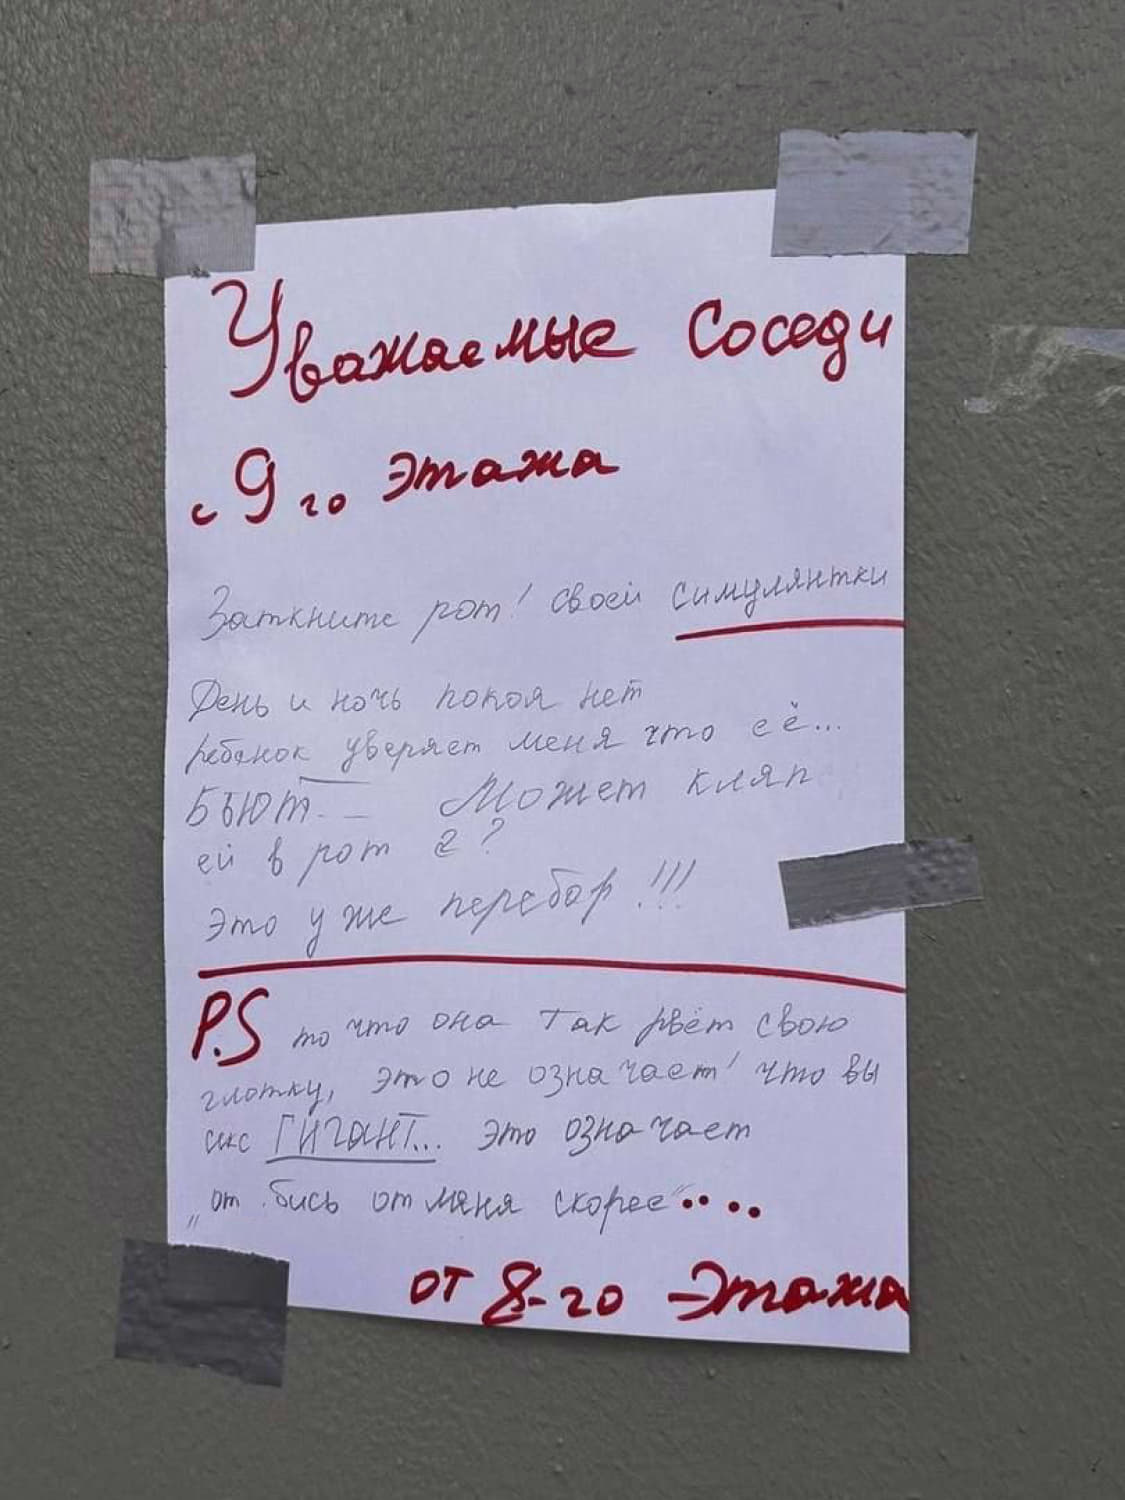 Уважаемые Соседи
с 9 го этажа
Заткните рот! своей симулянтки
День и ночь покоя нет
ребёнок уверяет меня что её...
БЬЮТ...
Может кляп
ей в рот а?
Это уже перебор!!!
P.S то что она так рвёт свою
глотку, это не означает! что вы
секс ГИГАНТ... это означает
"от.бись от меня скорее"....
от 8-го Этажа